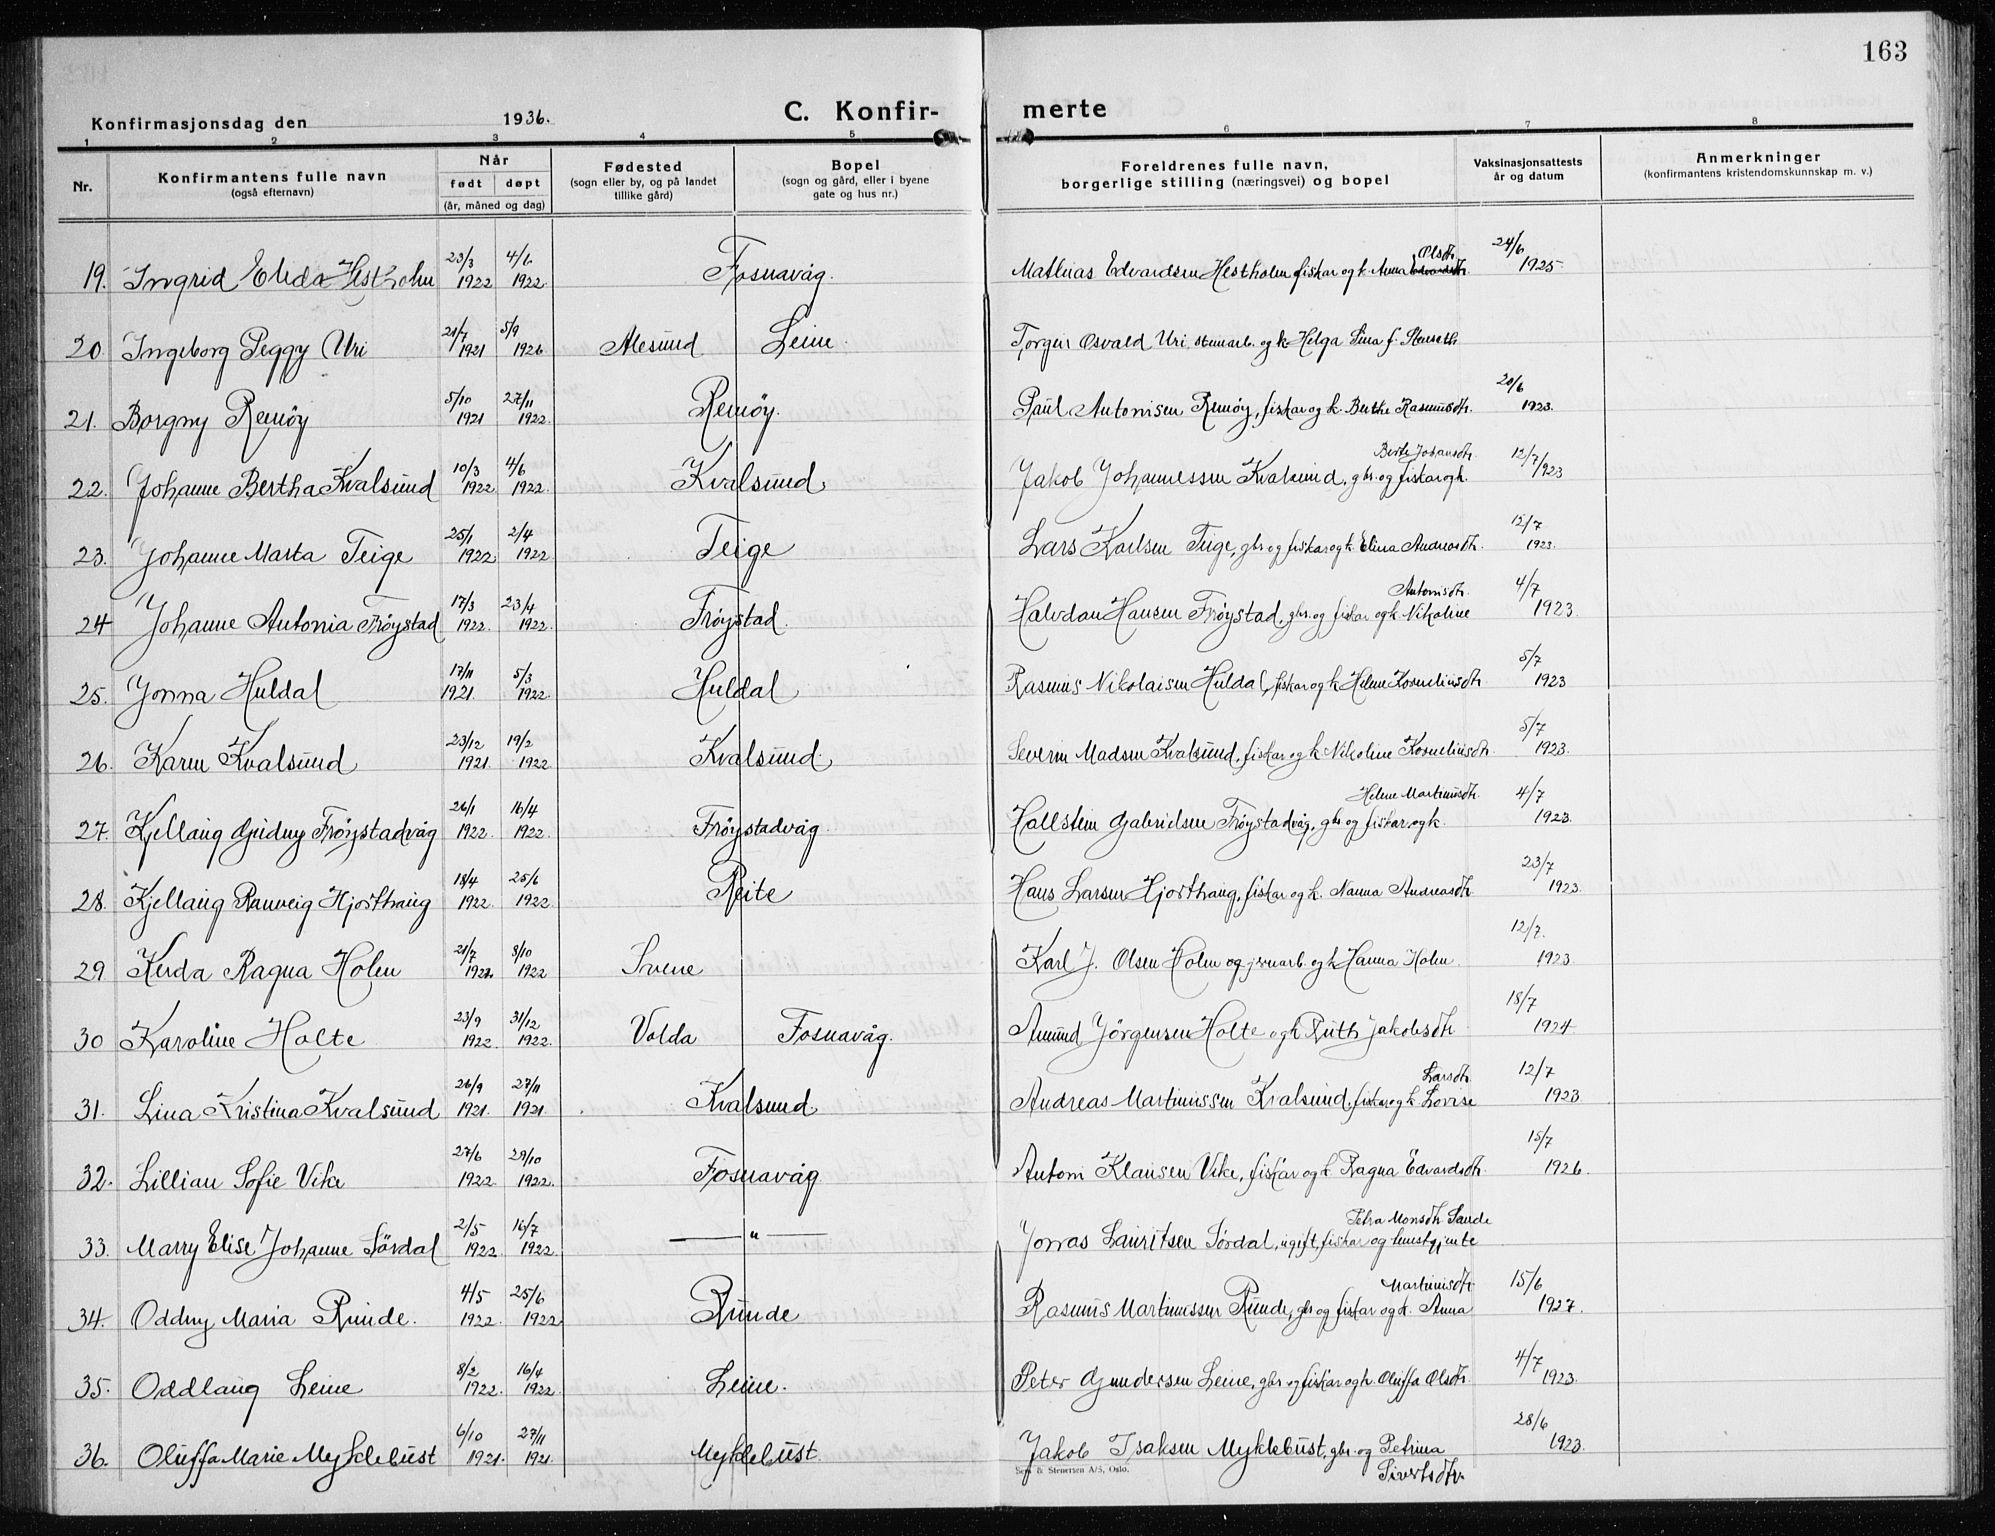 163
Konfirmasjonsdag den 1936. C. Konfir- merte
1 2 3 4 5 6 7 8
Nr. Konfirmantens fulle navn (også efternavn) Når født døpt (år, måned og dag) Fødested (sogn eller by, og på landet tillike gård) Bopel (sogn og gård, eller i byene gate og hus nr.) Foreldrenes fulle navn, borgerlige stilling (næringsvei) og bopel Vaksinasjonsattests år og datum Anmerkninger (konfirmantens kristendomskunnskap m. v.)
19. Ingrid Elida Hestholm 23/3 1922 4/6 1922 Fosnavåg. Mathias Edvardsen Hestholm fiskar og k. Anna Olsdtr. 24/6 1925
20 Ingeborg Peggy Uri 21/7 1921 5/9 1926 Ålesund Leine. Jørgen Osvald Uri, stenarb. og k. Helga Lina f. Stenseth
21. Borgny Remøy 5/10 1921 27/11 1922 Remøy. Paul Antonisen Remøy, fiskar og k. Berthe Rasmusdtr. 20/6 1923.
22. Johanne Bertha Kvalsund 10/3 1922 4/6 1922 Kvalsund Jakob Johannessen Kvalsund, gbr. og fiskar og k. Berte Johansdtr. 12/7 1923
23. Johanne Marta Teige 25/1 1922 2/4 1922 Teige Lars Karlsen Teige, gbr og fiskar og k. Elina Andreasdtr. 12/7 1923.
24 Johanne Antonia Frøystad 17/3 1922 23/4 1922 Frøystad. Halvdan Hansen Frøystad, gbr. og fiskar og k. Nikoline Antonisdtr. 4/7 1923.
25. Jonna Huldal 17/11 1921. 5/3 1922 Huldal Rasmus Nikolaisen Huldal, fiskar og k Helene Korneliusdtr. 5/7 1923
26. Karen Kvalsund 23/12 1921. 19/2 1922 Kvalsund. Severin Madsen Kvalsund, fiskar og k Nikoline Korneliusdtr. 5/7 1923.
27. Kjellaug Gudny Frøystadvåg 26/1 1922. 16/4 1922. Frøystadvåg. Hallstein Gabrielsen Frøystadvåg, gbr og fiskar og k. Helene Martinusdtr. 4/7 1923.
28. Kjellaug Ranveig Hjorthaug 18/4 1922. 25/6 1922. Reite Hans Larsen Hjorthaug, fiskar og k. Nanna Andreasdtr. 23/7 1923.
29 Kerda Ragna Holen 21/7 1922 8/10 1922 Svene Karl J. Olsen Holen og jernarb. og k Hanna Holen. 12/7. 1923.
30 Karoline Holte 23/9 1922. 31/12 1922. Volda Fosnavåg. Amund Jørgensen Holte og k Ruth Jakobsdtr. 18/7 1924
31. Lina Kristina Kvalsund 26/9 1921. 27/11 1921. Kvalsund Andreas Martinussen Kvalsund, fiskar og k. Lovise Larsdtr. 12/7 1923.
32. Lillian Sofie Vike 27/6 1922 29/10 1922. Fosnavåg Anton Klausen Vike, fiskar og k. Ragna Edvardsdtr. 15/7 1926.
33. Marry Elise Johanne Sørdal 2/5 1922 16/7 1922. — " — Jonas Lauritsen Sørdal, ugift, fiskar og tenestgjente Petra Monsdtr. Sande
34. Oddny Maria Runde. 4/5 1922. 25/6 1922 Runde Rasmus Martinussen Runde, gbr og fiskar og k. Anna Martinusdtr 15/6 1927.
35. Oddlaug Leine 8/2 1922. 16/4 1922. Leine. Peter Gundersen Leine, gbr og fiskar og k. Oluffa Olsdtr. 4/7 1923.
36. Oluffa Marie Myklebust 6/10 1921. 27/11 1921. Myklebust. Jakob Isaksen Myklebust, gbr. og Petrina Sivertsdtr. 28/6 1923.
Sem & Stenersen A/S, Oslo.